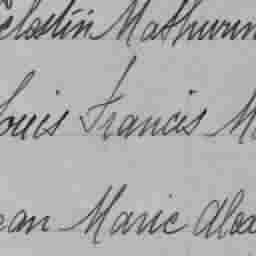 Celestin Mathurin
Louis Francis M
ean Marie Alex